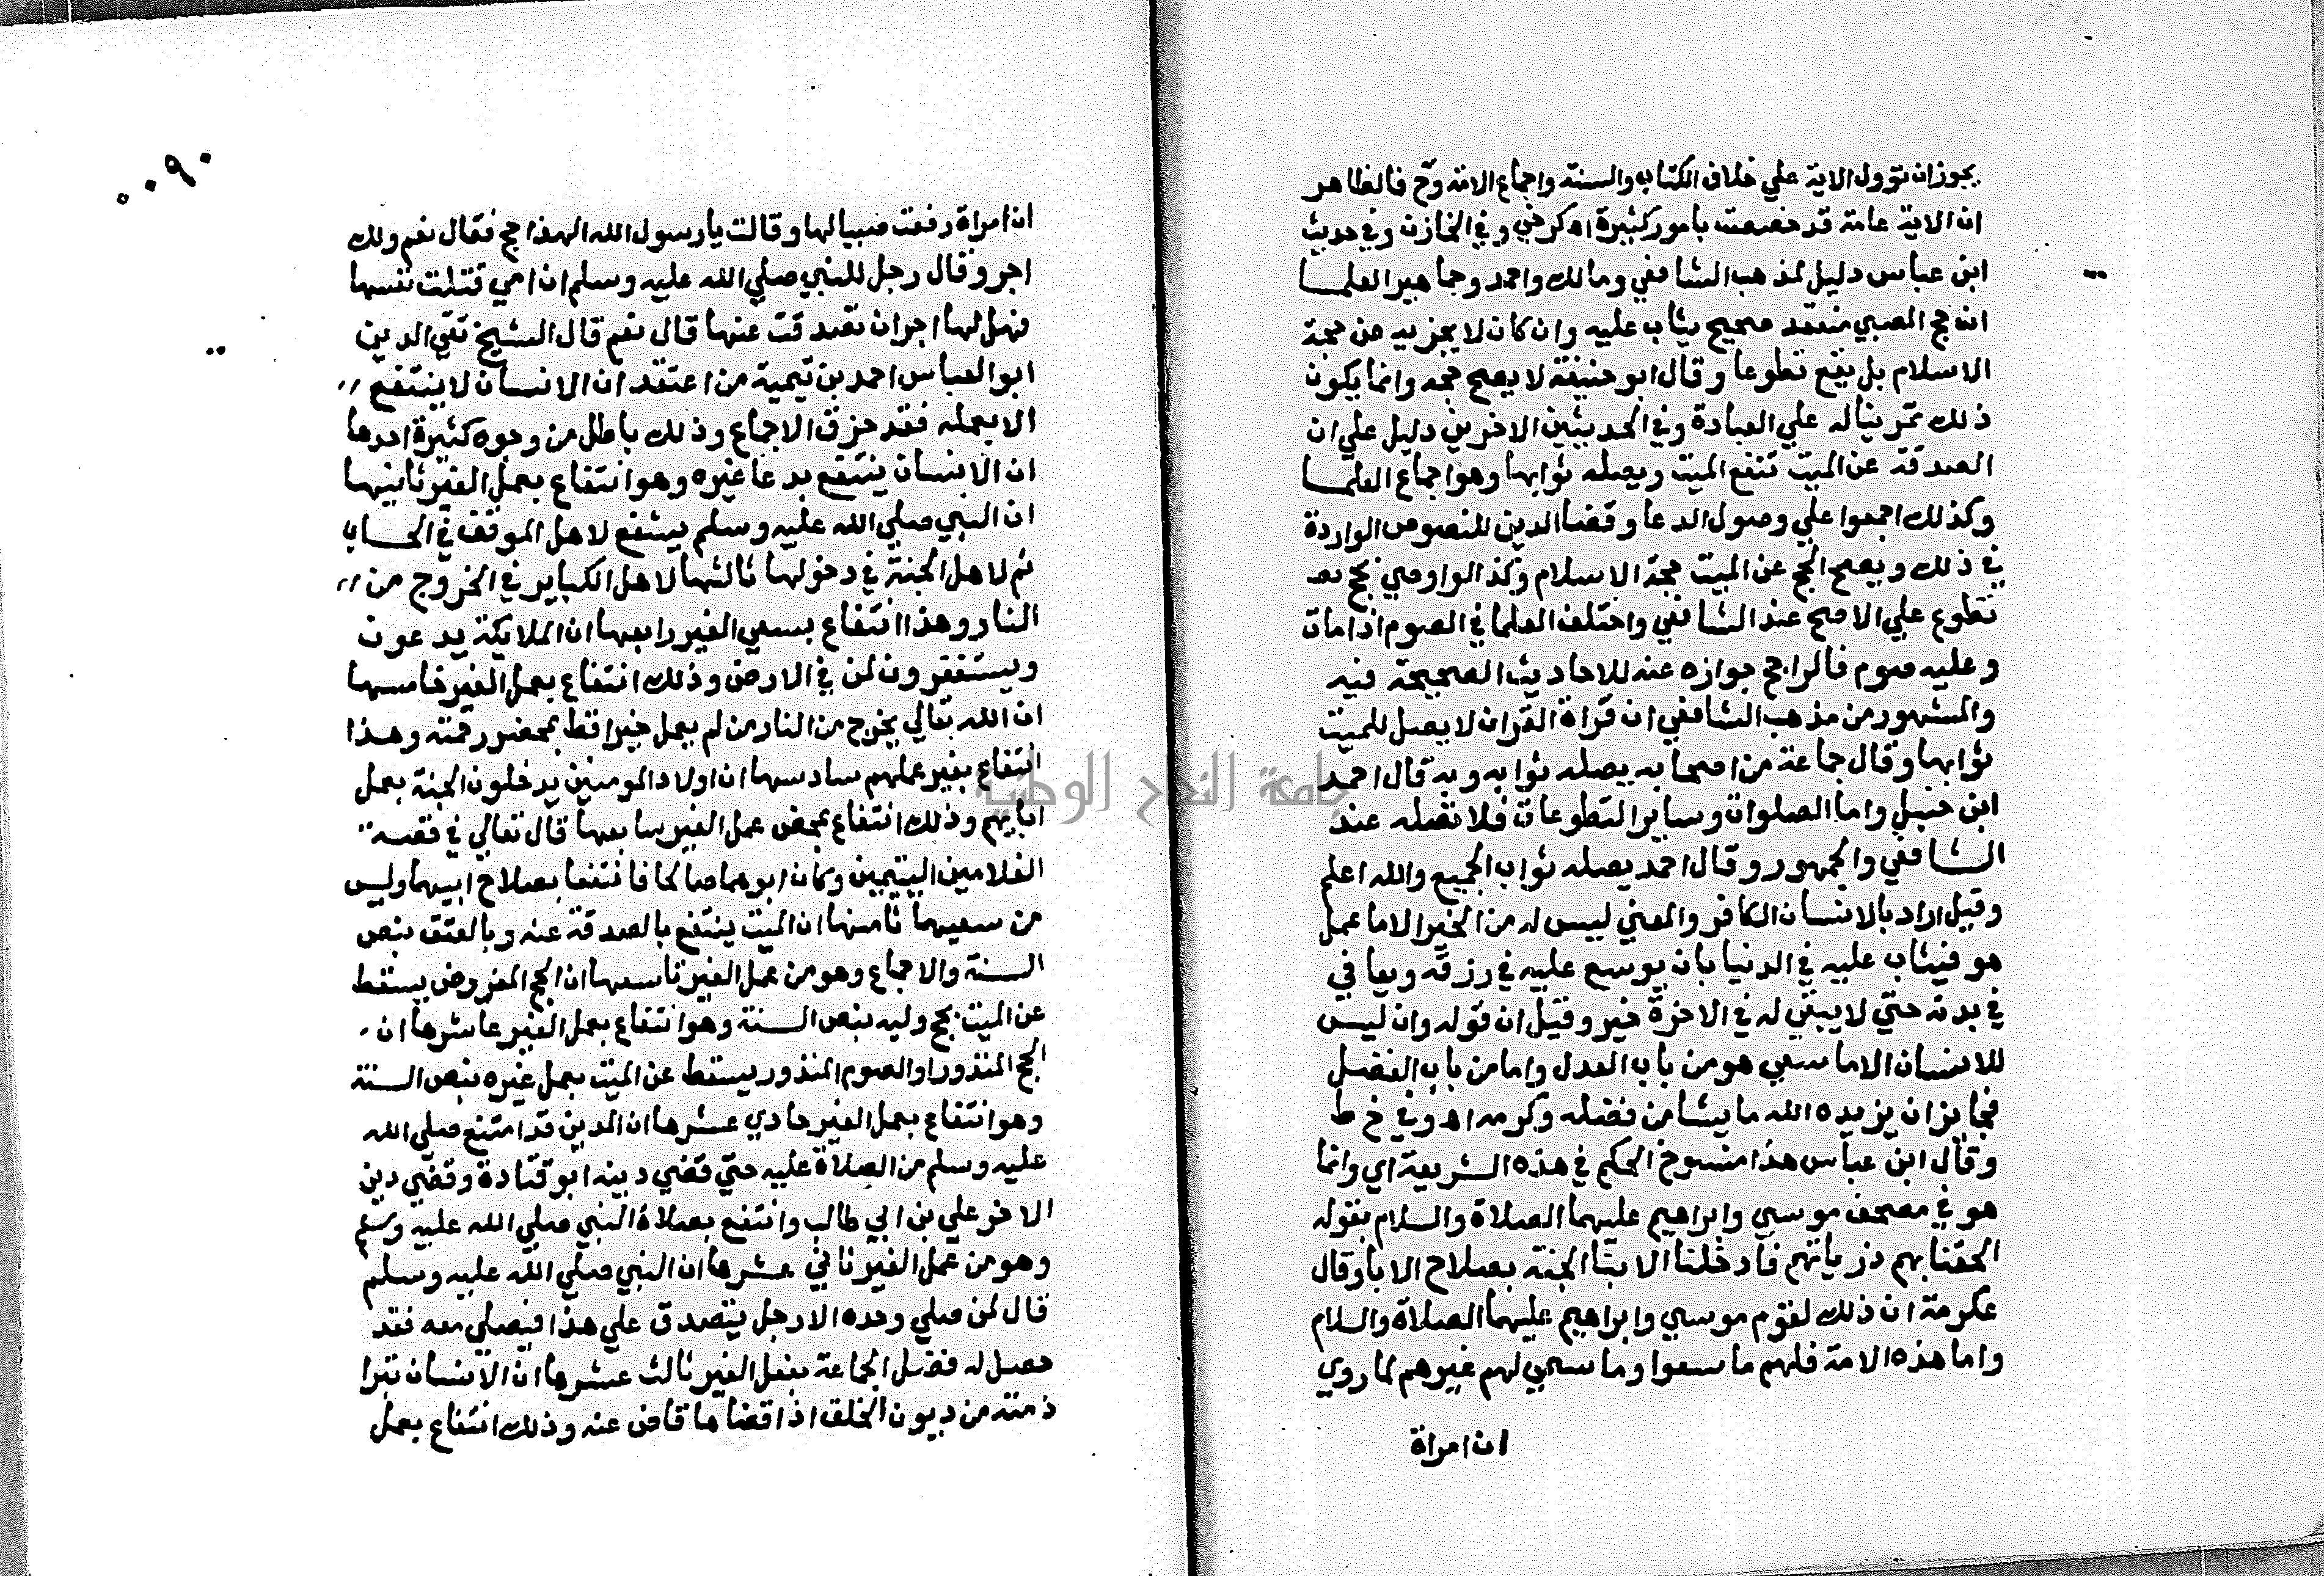 يجوز ان توول الاية علي خلاف الكتاب والسنة واجماع الامة وح فالظاهر
ان الاية عامة قد خصصت بأمور كثيرة اه كرخي وفي الخازن وفي حديث
ابن عباس دليل لمذهب الشافعي ومالك واحمد وجماهير العلما
ان حج الصبي منعقد صحيح يثاب عليه وان كان لا يجزيه عن حجة
الاسلام بل يقع تطوعا وقال ابو حنيفة لا يصح حجه وانما يكون
ذلك تمرينا له علي العبادة وفي الحديثين الاخرين دليل علي ان
الصدقة عن الميت تنفع الميت ويصله ثوابها وهو اجماع العلما
وكذلك اجمعوا علي وصول الدعا وقضا الدين للنصوص الواردة
في ذلك ويصح الحج عن الميت حجة الاسلام وكذا لو اوصي بحج
تطوع علي الاصح عند الشافعي واختلف العلما في الصوم اذا مات
وعليه صوم فالراجح جوازه عنه للاحاديث الصحيحة فيه
والمشهور من مذهب الشافعي ان قراة القران لا يصل للميت
ثوابها وقال جماعة من اصحابه يصله ثوابه وبه قال احمد
ابن حنبل واما الصلوات وساير التطوعات فلا تصله عند
الشافعي والجمهور وقال احمد يصله ثواب الجميع والله اعلم
وقيل اراد بالانسان الكافر والمعني ليس له من الخير الا ما عمل
هو فيثاب عليه في الدنيا بان يوسع عليه في رزقه ويعافي
في بدنه حتي لا يبقي له في الاخرة خير وقيل ان قوله وان ليس
للانسان الا ما سعي هو من باب العدل واما من باب الفضل
فجايز ان يزيده الله ما يشا من فضله وكرمه اه وفي خ ط
وقال ابن عباس هذا منسوخ الحكم في هذه الشريعة اي وانما
هو في مصحف موسي وابراهيم عليهما الصلاة والسلام بقوله
الحقنا بهم ذرياتهم فادخلنا الابنا الجنة بصلاح الابا وقال
عكرمة ان ذلك لقوم موسي وابراهيم عليهما الصلاة والسلام
واما هذه الامة فلهم ما سعوا وما سعي لهم غيرهم لما روي
ان امراة
٠٠٩٠
ان امراة رفعت صبيا لها وقالت يا رسول الله الهذا حج فقال نعم ولك
اجر وقال رجل للنبي صلي الله عليه وسلم ان امي قتلت نفسها
فهل لها اجر ان تصدقت عنها قال نعم قال الشيخ تقي الدين
ابو العباس احمد بن تيمية من اعتقد ان الانسان لا ينتفع
الا بعمله فقد خرق الاجماع وذلك باطل من وجوه كثيرة احدها
ان الانسان ينتفع بدعا غيره وهو انتفاع بعمل الغير ثانيها
ان النبي صلي الله عليه وسلم يشفع لاهل الموقف في الحساب
ثم لاهل الجنة في دخولها ثالثها لاهل الكباير في الخروج من
النار وهذا انتفاع بسعي الغير رابعها ان الملايكة يدعون
ويستغفرون لمن في الارض وذلك انتفاع بعمل الغير خامسها
ان الله تعالي يخرج من النار من لم يعمل خيرا قط بمحض رحمته وهذا
انتفاع بغير عملهم سادسها ان اولاد المومنين يدخلون الجنة بعمل
ابايهم وذلك انتفاع بمحض عمل الغير سابعها قال تعالي في قصه
الغلامين اليتيمين وكان ابوهما صالحا فانتفعا بصلاح ابيهما وليس
من سعيهما ثامنها ان الميت ينتفع بالصدقة عنه وبالعتق بنص
السنة والاجماع وهو من عمل الغير تاسعها ان الحج المفروض يسقط
عن الميت بحج وليه بنص السنة وهو انتفاع بعمل الغير عاشرها ان
الحج المنذور او الصوم المنذور يسقط عن الميت بعمل غيره بنص السنة
وهو انتفاع بعمل الغير حادي عشرها ان المدين قد امتنع صلي الله
عليه وسلم من الصلاة عليه حتي قضي دينه ابو قتادة وقضي دين
الاخر علي بن ابي طالب وانتفع بصلاة النبي صلي الله عليه وسلم
وهو من عمل الغير ثاني عشرها ان النبي صلي الله عليه وسلم
قال لمن صلي وحده الا رجل يتصدق علي هذا فيصلي معه فقد
حصل له فضل الجماعة بفعل الغير ثالث عشرها ان الانسان تبرا
ذمته من ديون الخلق اذا قضاها قاض عنه وذلك انتفاع بعمل
جامعة النجاح الوطنية